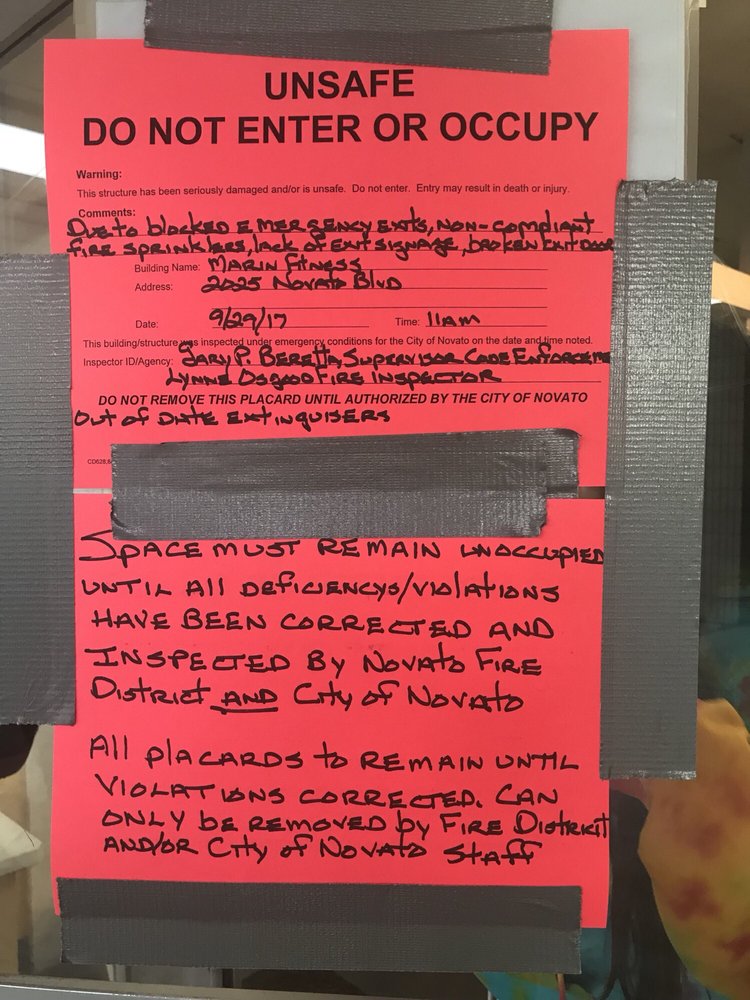 UNSAFE
DO NOT ENTER OR OCCUPY
Warning:
This structure has been seriously damaged and/or is unsafe. Do not enter. Entry may result in death or injury.
Comments:
Due to blocked EMERGENCY EXITS, NON-compliant
fire sprinklers, lack of Exit signage, broken Exit Door
Building Name: MARIN FITNESS
Address: 2025 Novato Blvd
Date: 9/29/17 Time: 11AM
This building/structure was inspected under emergency conditions for the City of Novato on the date and time noted.
Inspector ID/Agency: GARY P. BERETTA, SUPERVISOR CODE ENFORCEME
LYNNE OSGOOD FIRE INSPECTOR
DO NOT REMOVE THIS PLACARD UNTIL AUTHORIZED BY THE CITY OF NOVATO
OUT OF DATE EXTINQUISERS
SPACE MUST REMAIN UNOCCUPIED
UNTIL All DEFICIENCYS/VIOLATIONS
HAVE BEEN CORRECTED AND
INSPECTED BY NOVATO FIRE
DISTRICT AND CITY OF NOVATO
All PLACARDS TO REMAIN UNTIL
VIOLATIONS CORRECTED. CAN
ONLY BE REMOVED BY FIRE DISTRICT
AND/OR CITY OF NOVATO STAFF